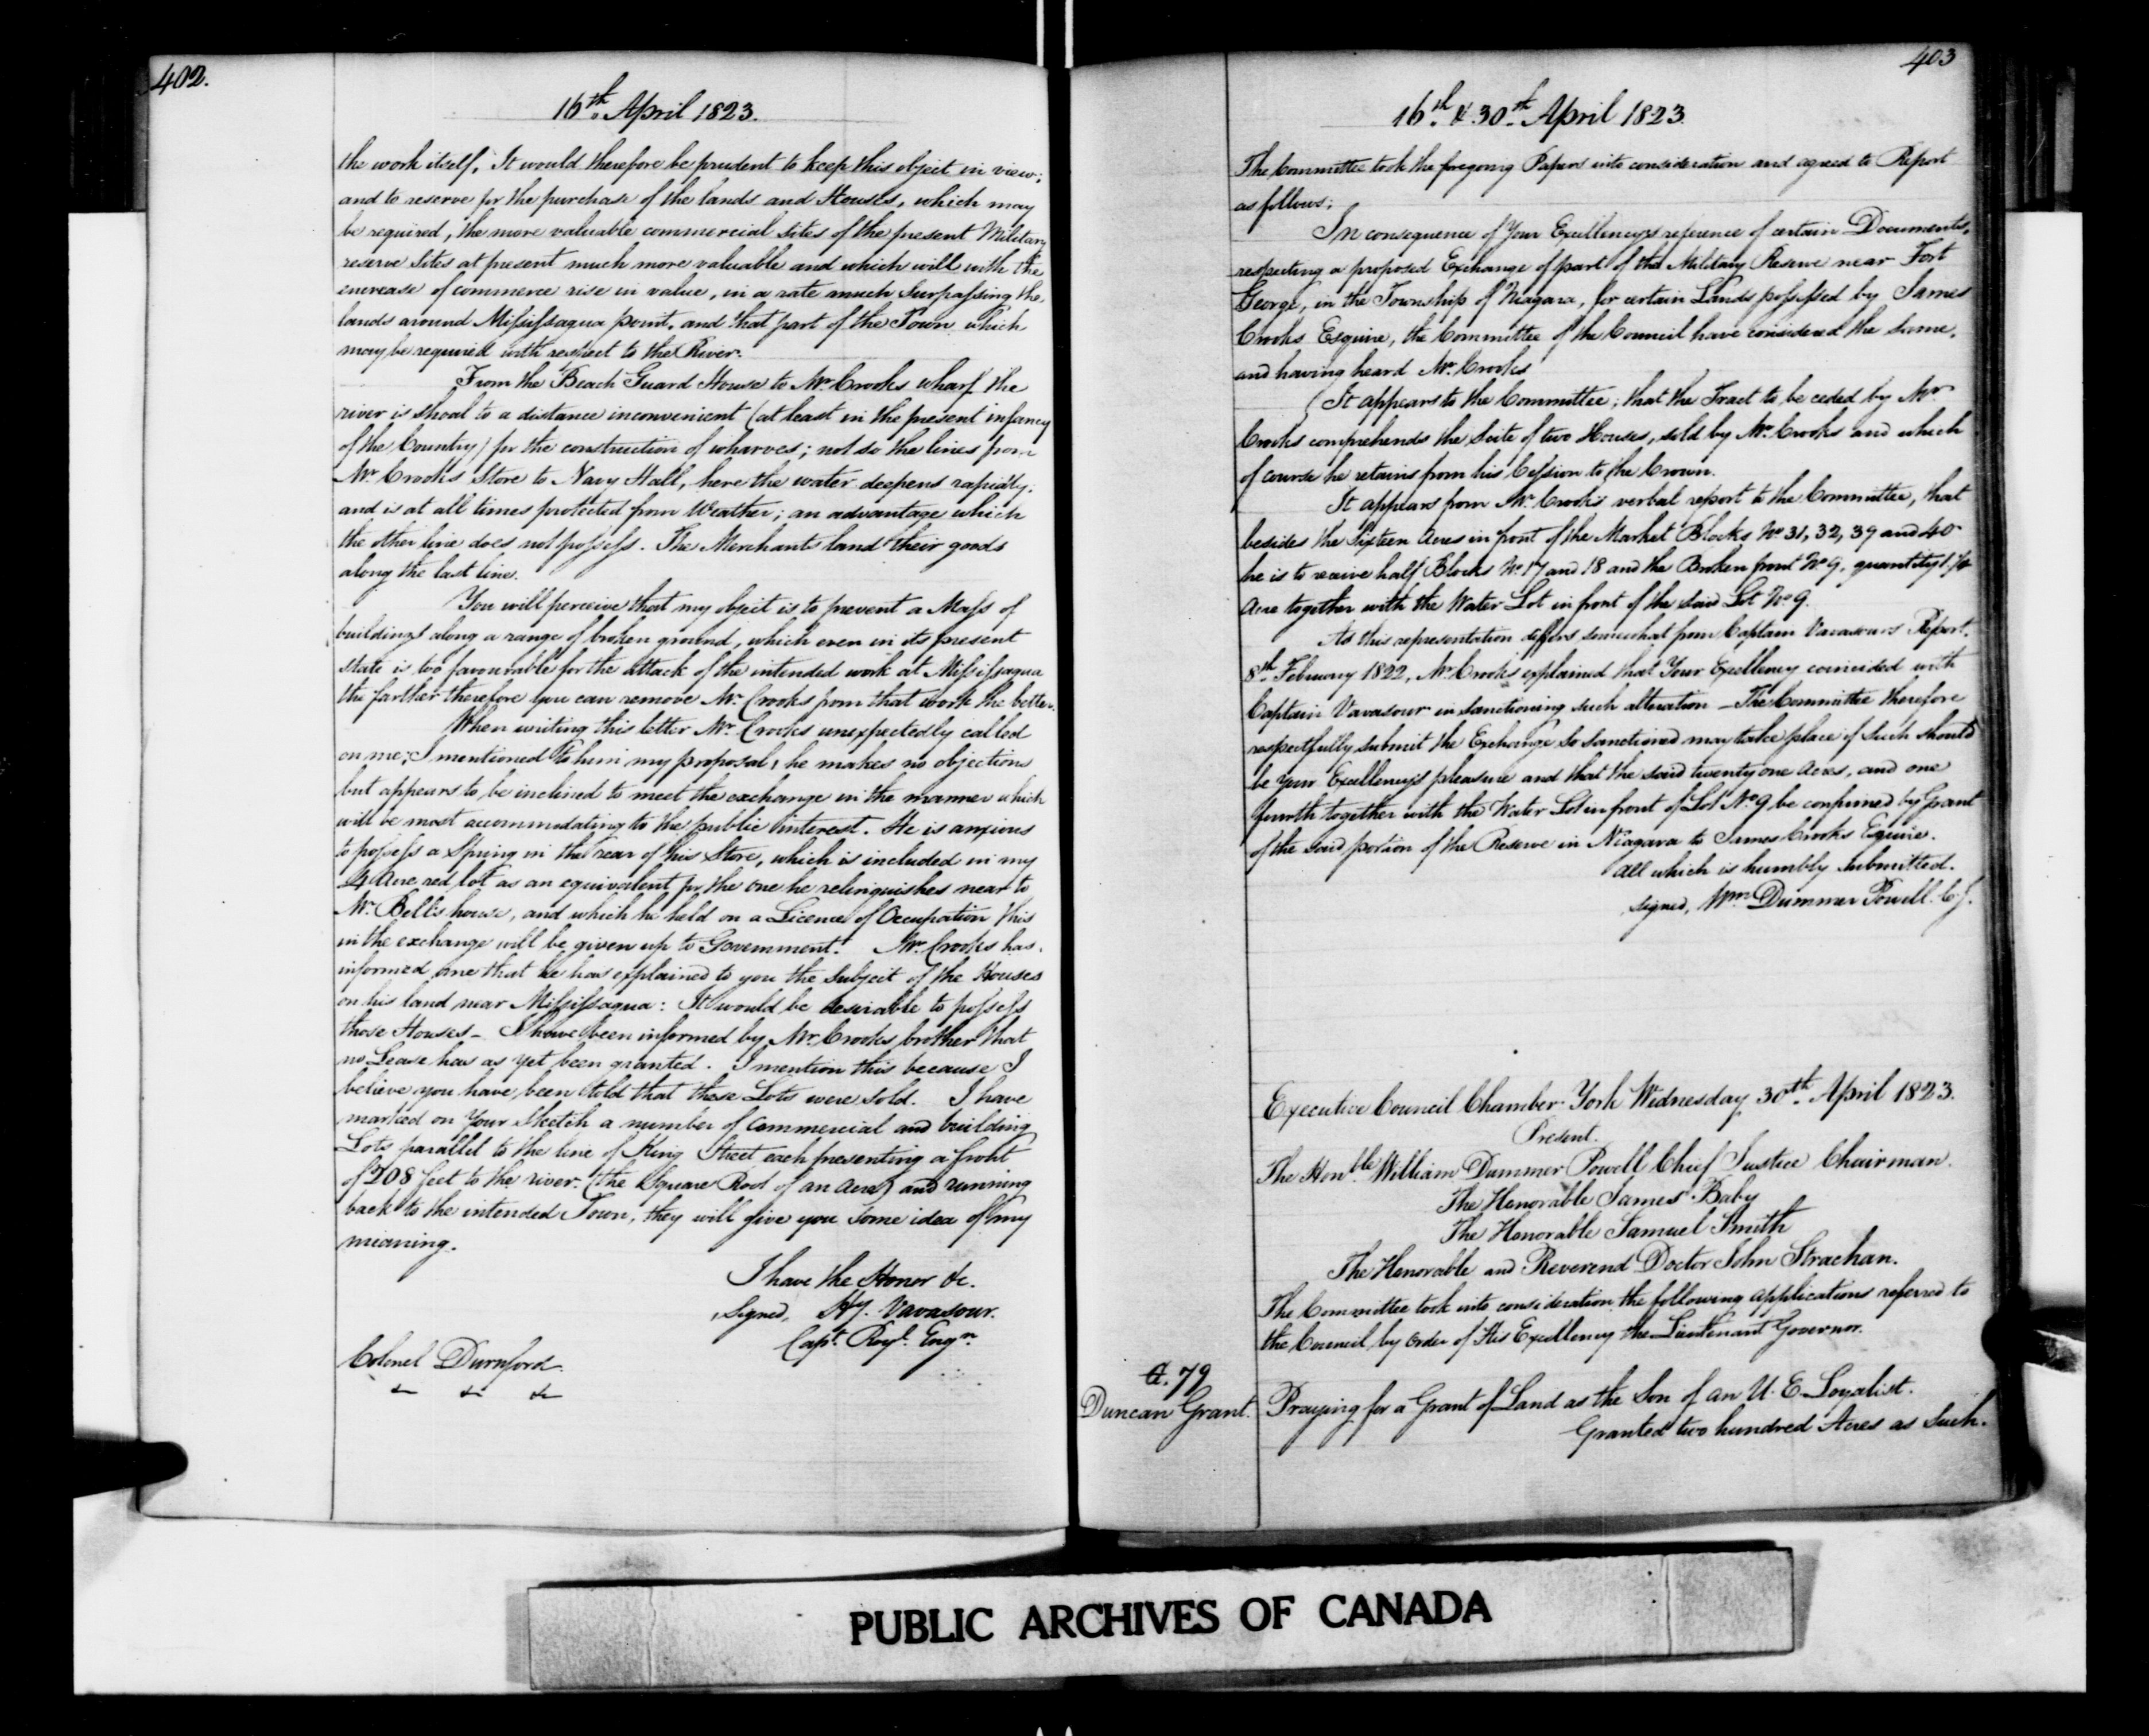 402.
16th April 1823.
the work itself, It would therefore be prudent to keep this object in view;
and to reserve for the purchase of the lands and Houses, which may
be required, the more valuable commercial sites of the present Military
reserve Sites at present much more valuable and which will with the
encrease of commerce rise in value, in a rate much Surpassing the
lands around Mississaqua point, and that part of the Town which
may be required with respect to the River.
From the Beach Guard House to Mr. Crooks wharf the
river is shoal to a distance inconvenient (at least in the present infancy
of the Country) for the construction of wharves; not so the lines from
Mr. Crooks Store to Navy Hall, here the water deepens rapidly;
and is at all times protected from Weather; an advantage which
the other line does not possess. The Merchants land their goods
along the last line.
You will perceive that my object is to prevent a Mass of
buildings along a range of broken ground, which even in its present
state is too favourable for the attack of the intended work at Mississaqua
the farther therefore you can remove Mr. Crooks from that work the better.
When writing this letter Mr. Crooks unexpectedly called
on me; I mentioned to him my proposal, he makes no objections
but appears to be inclined to meet the exchange in the manner which
will be most accommodating to the public interest. He is anxious
to possess a Spring in the rear of his Store, which is included in my
4 Acre red lot as an equivalent for the one he relinquishes near to
Mr. Bell's house, and which he held on a Licence of Occupation this
in the exchange will be given up to Government. Mr. Crooks has
informed me that he has explained to you the subject of the Houses
on his land near Mississaqua: It would be desirable to possess
those Houses - I have been informed by Mr. Crooks brother that
no Lease has as yet been granted. I mention this because I
believe you have been told that these Lots were sold. I have
marked on Your Sketch a number of Commercial and building
Lots parallel to the line of King Street each presenting a front
of 208 feet to the river. (the Square Root of an Acre) and running
back to the intended Town, they will give you some idea of my
meaning.
I have the Honor &c.
Signed, Hy. Vavasour.
Capt. Royl. Engn.
Colonel Durnford.
&c &c &c
403
16th & 30th April 1823.
The Committee took the foregoing Papers into consideration and agreed to Report
as follows;
In consequence of Your Excellency's reference of certain Documents,
respecting a proposed Exchange of part of the Military Reserve near Fort
George, in the Township of Niagara, for certain Lands possessed by James
Crooks Esquire, the Committee of the Council have considered the same,
and having heard Mr. Crooks
It appears to the Committee, that the Tract to be ceded by Mr.
Crooks comprehends the Scite of two Houses, sold by Mr. Crooks and which
of course he retains from his Cession to the Crown.
It appears from Mr. Crooks verbal report to the Committee, that
besides the Sixteen Acres in front of the Market Blocks No. 31, 32, 39 and 40
he is to receive half Blocks No. 17 and 18 and the Broken front No. 9, quantity 1 1/4
Acre together with the Water Lot in front of the said Lot No. 9.
As this representation differs somewhat from Captain Vavasours Report.
8th February 1822, Mr. Crooks explained that Your Excellency coincided with
Captain Vavasour in sanctioning such alteration - The Committee therefore
respectfully submit the Exchange so sanctioned may take place if such should
be Your Excellency's pleasure and that the said twenty one Acres, and one
fourth together with the Water Lot in front of Lot No. 9 be confirmed by Grant
of the said portion of the Reserve in Niagara to James Crooks Equire.
all which is humbly submitted.
Signed, Wm. Dummer Powell. C.J.
Executive Council Chamber York Wednesday 30th April 1823.
Present.
The Honble. William Dummer Powell Chief Justice Chairman.
The Honorable James Baby
The Honorable Samuel Smith
The Honorable and Reverend Doctor John Strachan.
The Committee took into consideration the following applications referred to
the Council by order of His Excellency the Lieutenant Governor.
G. 79
Duncan Grant. Praying for a Grant of Land as the Son of an U. E. Loyalist.
Granted two hundred Acres as Such.
PUBLIC ARCHIVES OF CANADA